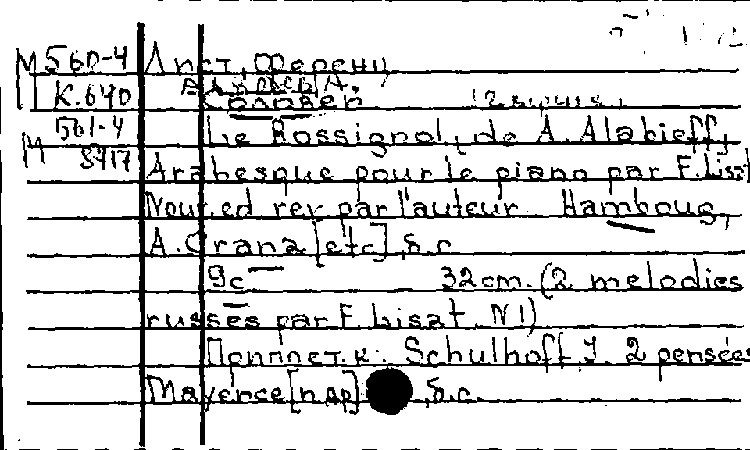 М 560-4 Лист, Ференц
К.640 Алябьев А.
Соловей
561-4 Le Rossignol, de A. Alabieff,
М 8717 Arabesque pour le piano par F. Liszt
Nouv. ed rev par l'auteur Hamboug,
A. Crana [etc], б.г.
9с 32 cm. (2 melodies
russes par F. Liszt. N 1)
Приплет. к: Schulhoff, J. 2 pensées
Mayence [и др] б.г.